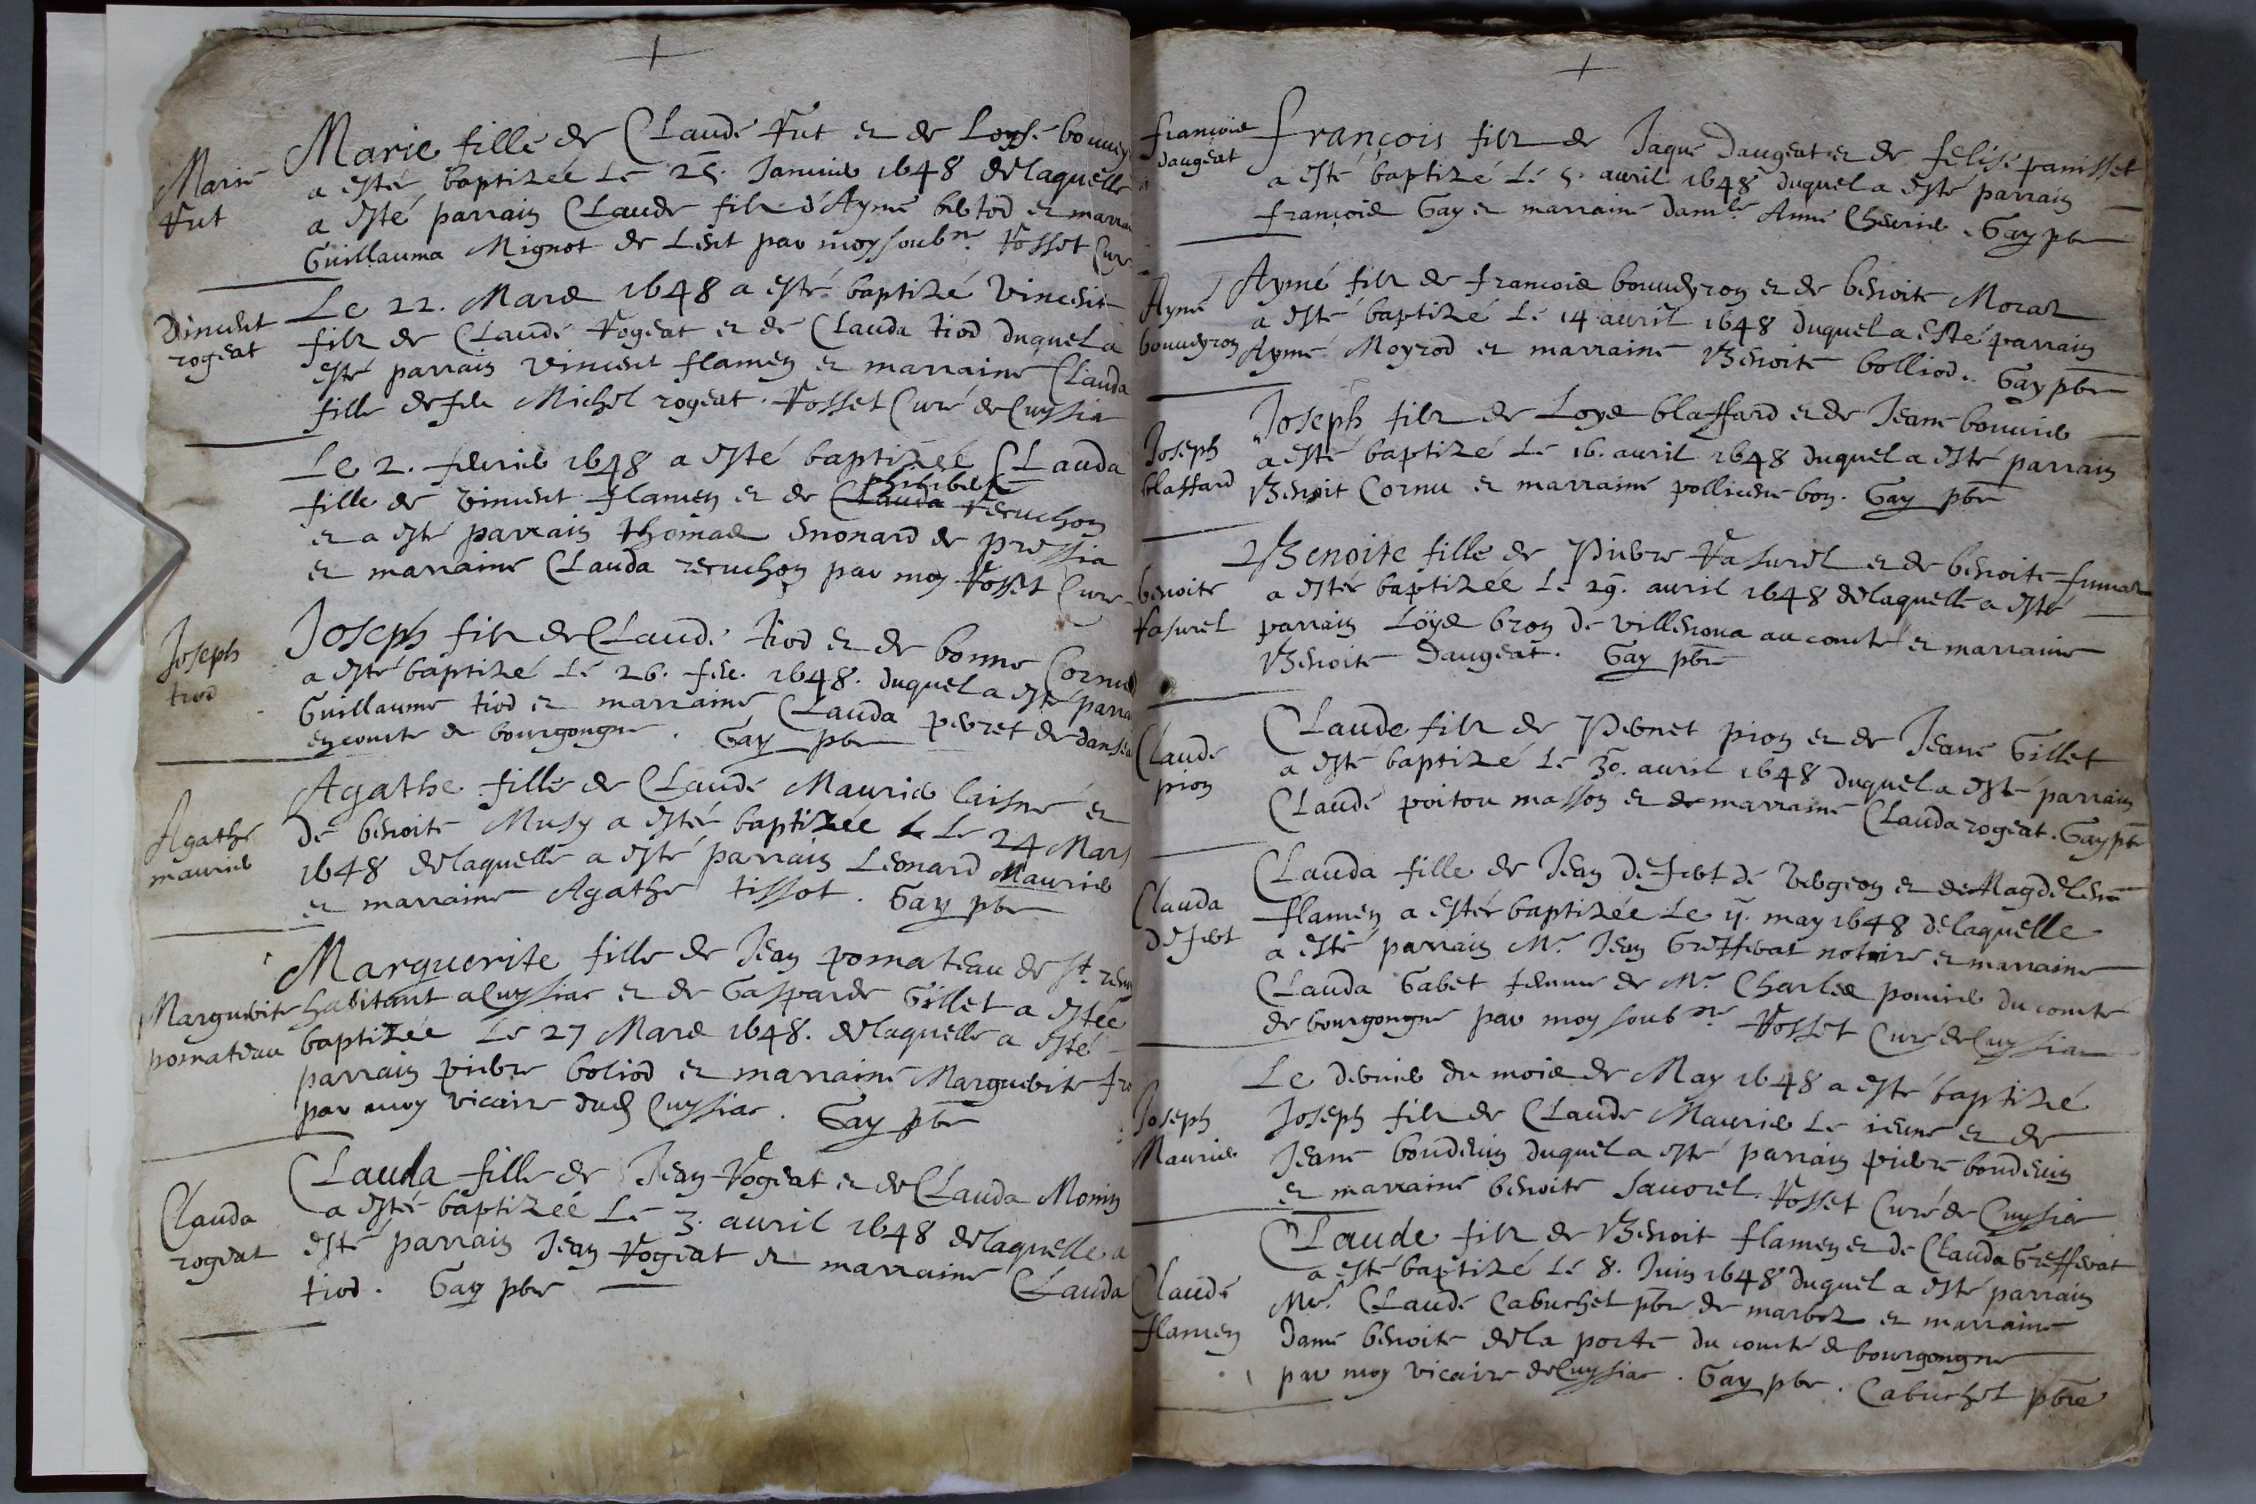 Marie
Rut
Marie fille de Claude Rut et de Loyse bouvey
a estée baptizée le 25. Januier 1648 de laquelle
a esté parrain Claude fils d'Ayme bertod et marra
Guillauma Mignot de Lent par moy soubne. Rosset Cure
Vincent
rogeat
Le 22. Mars 1648 a esté baptizé Vincent
filz de Claude Rogeat et de Clauda tiod duquel a
esté parrain Vincent flamen et marraine Clauda
fille de feu Michel rogeat. Rosset Curé de Cuysia
Le 2. feurier 1648 a esté baptizée Clauda
philiberte
fille de Vincent flamen et de Clauda Reruchon
et a esté parrain thomas monard de pressia
et marraine Clauda reruchon par moy Rosset Cure
Joseph
tiod
Joseph filz de Claude tiod et de bonne Cornu
a esté baptizé le 26. feu. 1648. duquel a esté parra
Guillaume tiod et marraine Clauda peuret de
en comte de bourgongne. Gay pbre
Agathe
maurier
Agathe fille de Claude Maurier laisné et
de benoite Musy a estée baptizée le 24 Mars
1648 de laquelle a esté parrain Leonard Maurier
et marraine Agathe tissot. Gay pbre
Marguerite
pomateau
Marguerite fille de Jean pomateau de st.
habitant a Cuysiac et de Gasparde Gillet a estée
baptizée le 27 Mars 1648. de laquelle a esté
parrain pierre boliod et marraine Marguerite
par moy vicaire dud Cuysiac. Gay pbre
Clauda
rogeat
Clauda fille de Jean Rogeat et de Clauda Monin
a estée baptizée le 3. auril 1648 de laquelle a
esté parrain Jean Rogeat et marraine Clauda
tiod. Gay pbre
françois
daugeat
françois filz de Jaque daugeat et de felise panisset
a esté baptizé le 5. auril 1648 duquel a esté parrain
françois Gay et marraine damle Anne Cheurier. Gay pbre
Aymé
bouueyron
Aymé filz de françois bouueyron et de benoite Moraz
a esté baptizé le 14 auril 1648 duquel a esté parrain
Aymé Moyrod et marraine Benoite bolliod. Gay pbre
Joseph
blaffard
Joseph filz de Loys blaffard et de Jeane bouuier
a esté baptizé le 16. auril 1648 duquel a esté parrain
Benoit Cornu et marraine pollicene bon. Gay pbre
benoite
Rasurel
Benoite fille de Pierre Rasurel et de benoite
a estée baptizée le 29. auril 1648 de laquelle a esté
parrain Loÿs bron de villenoua au comté et marraine
Benoite Daugeat. Gay pbre
Claude
pion
Claude filz de Pernet pion et de Jeane Gillet
a esté baptizé le 30. auril 1648 duquel a esté parrain
Claude poitou masson et de marraine Clauda rogeat. Gay pbre
Clauda
desert
Clauda fille de Jean desert de Vergeon et de Magdelene
flamen a estée baptizée le ij. may 1648 delaquelle
a esté parrain Mr. Jean Greffevat notaire et marraine
Clauda Gabet femme de Mr. Charles pouvier du comté
de bourgongne par moy soubne Rosset Curé de Cuysiac
Joseph
Maurier
Le dernier du mois de May 1648 a esté baptizé
Joseph filz de Claude Maurier le ieune et de
Jeane bouderin duquel a esté parrain pierre bouderin
et marraine benoite Sauorel. Rosset Curé de Cuysiac
Claude
flamen
Claude filz de Benoit flamen et de Clauda Greffevat
a esté baptizé le 8. Juin 1648 duquel a esté parrain
Mre. Claude Cabuchet pbre de marboz et marraine
Dame benoite dela porte du comté de bourgongne
par moy vicaire de Cuysiac. Gay pbre. Cabuchet pbre